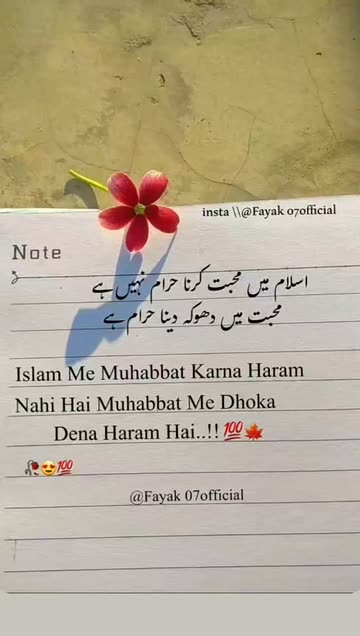 insta \\@Fayak 07official
Note
اسلام میں محبت کرنا حرام نہیں ہے
محبت میں دھوکہ دینا حرام ہے
Islam Me Muhabbat Karna Haram
Nahi Hai Muhabbat Me Dhoka
Dena Haram Hai..!! 💯🍁
🥀😍💯
@Fayak 07official